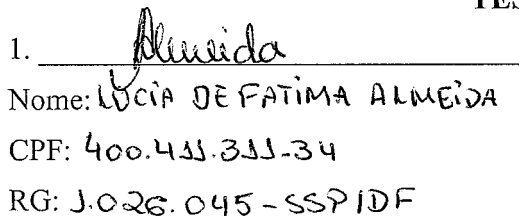 TES
1. Almeida
Nome: LUCIA DE FATIMA ALMEIDA
CPF: 400.411.311-34
RG: 1.026.045-SSP/DF